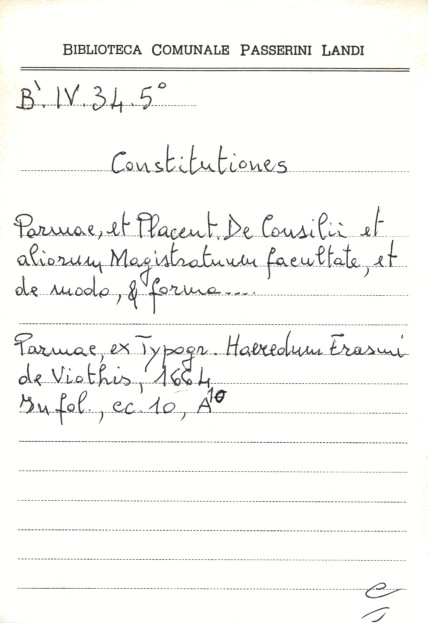 BIBLIOTECA COMUNALE PASSERINI LANDI
B`. IV. 34. 5°
Constitutiones
Parmae, et Placent. De Consilii et
aliorum Magistratuum facultate, et
de modo, & forma....
Parmae, ex Typogr. Haeredum Erasmi
de Viothis, 1664
In fol., cc. 10, A10